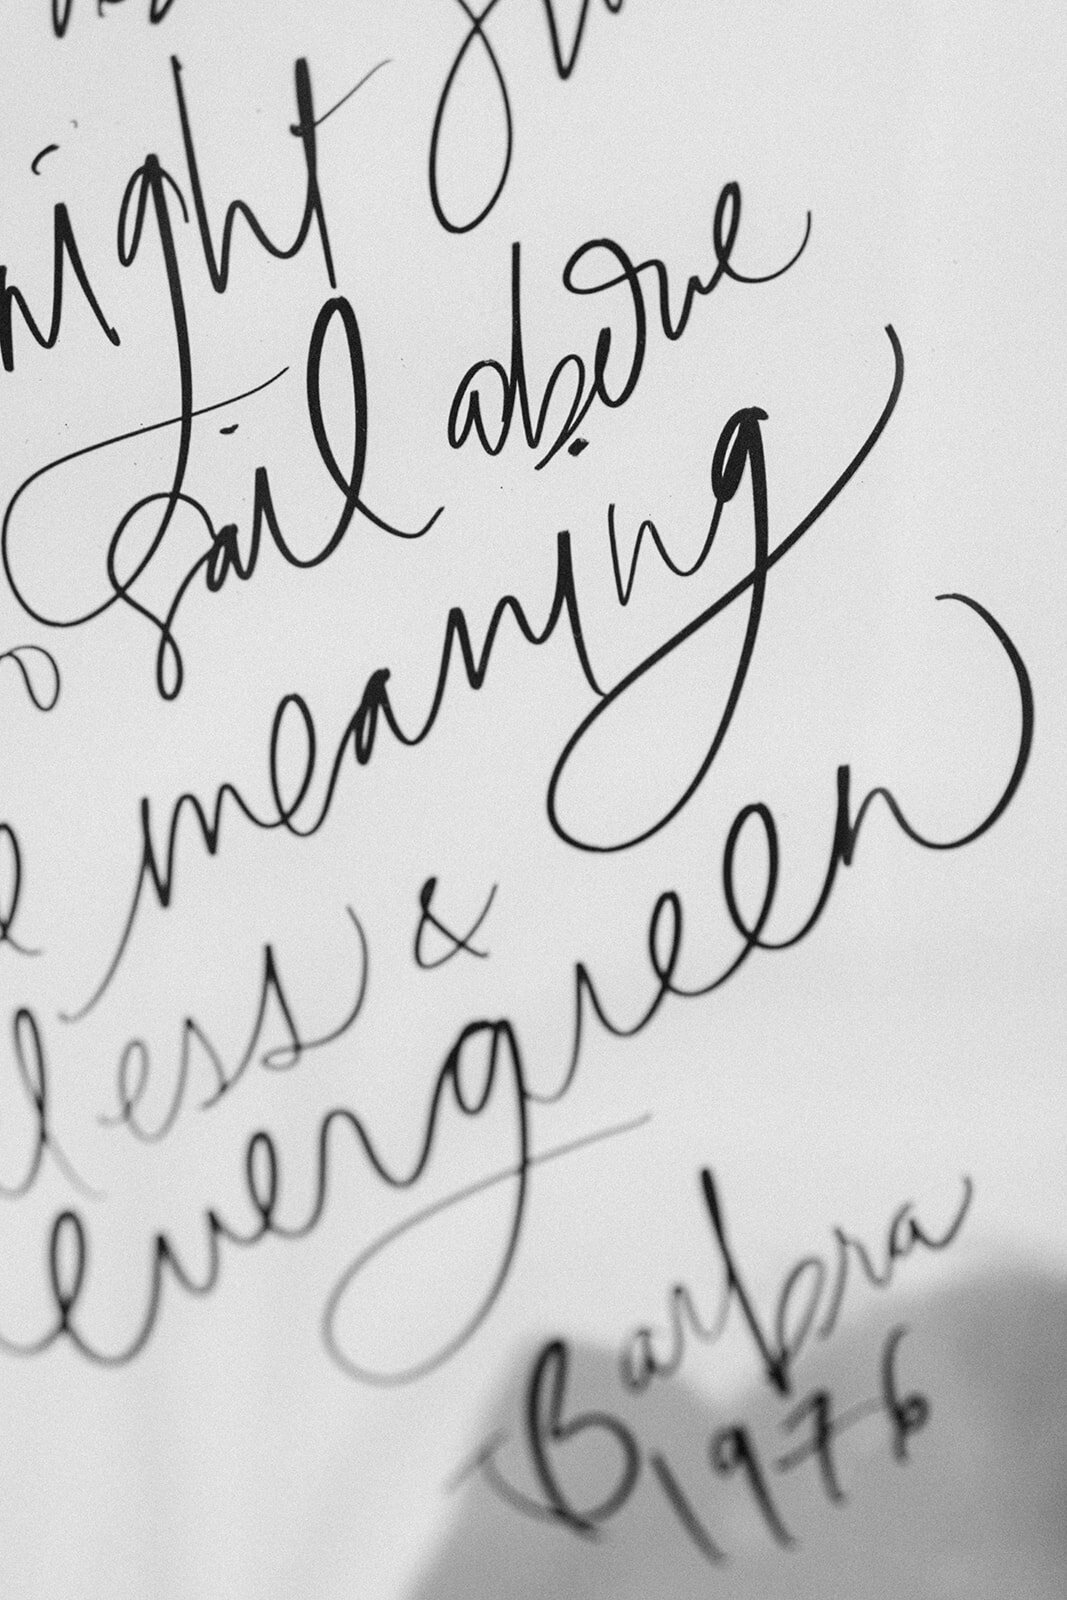 night
sail above
meaning
less &
evergreen
Barbra
1976